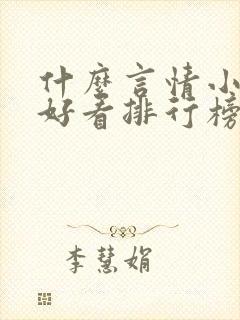 什麼言情小
好看排行榜
李慧娟